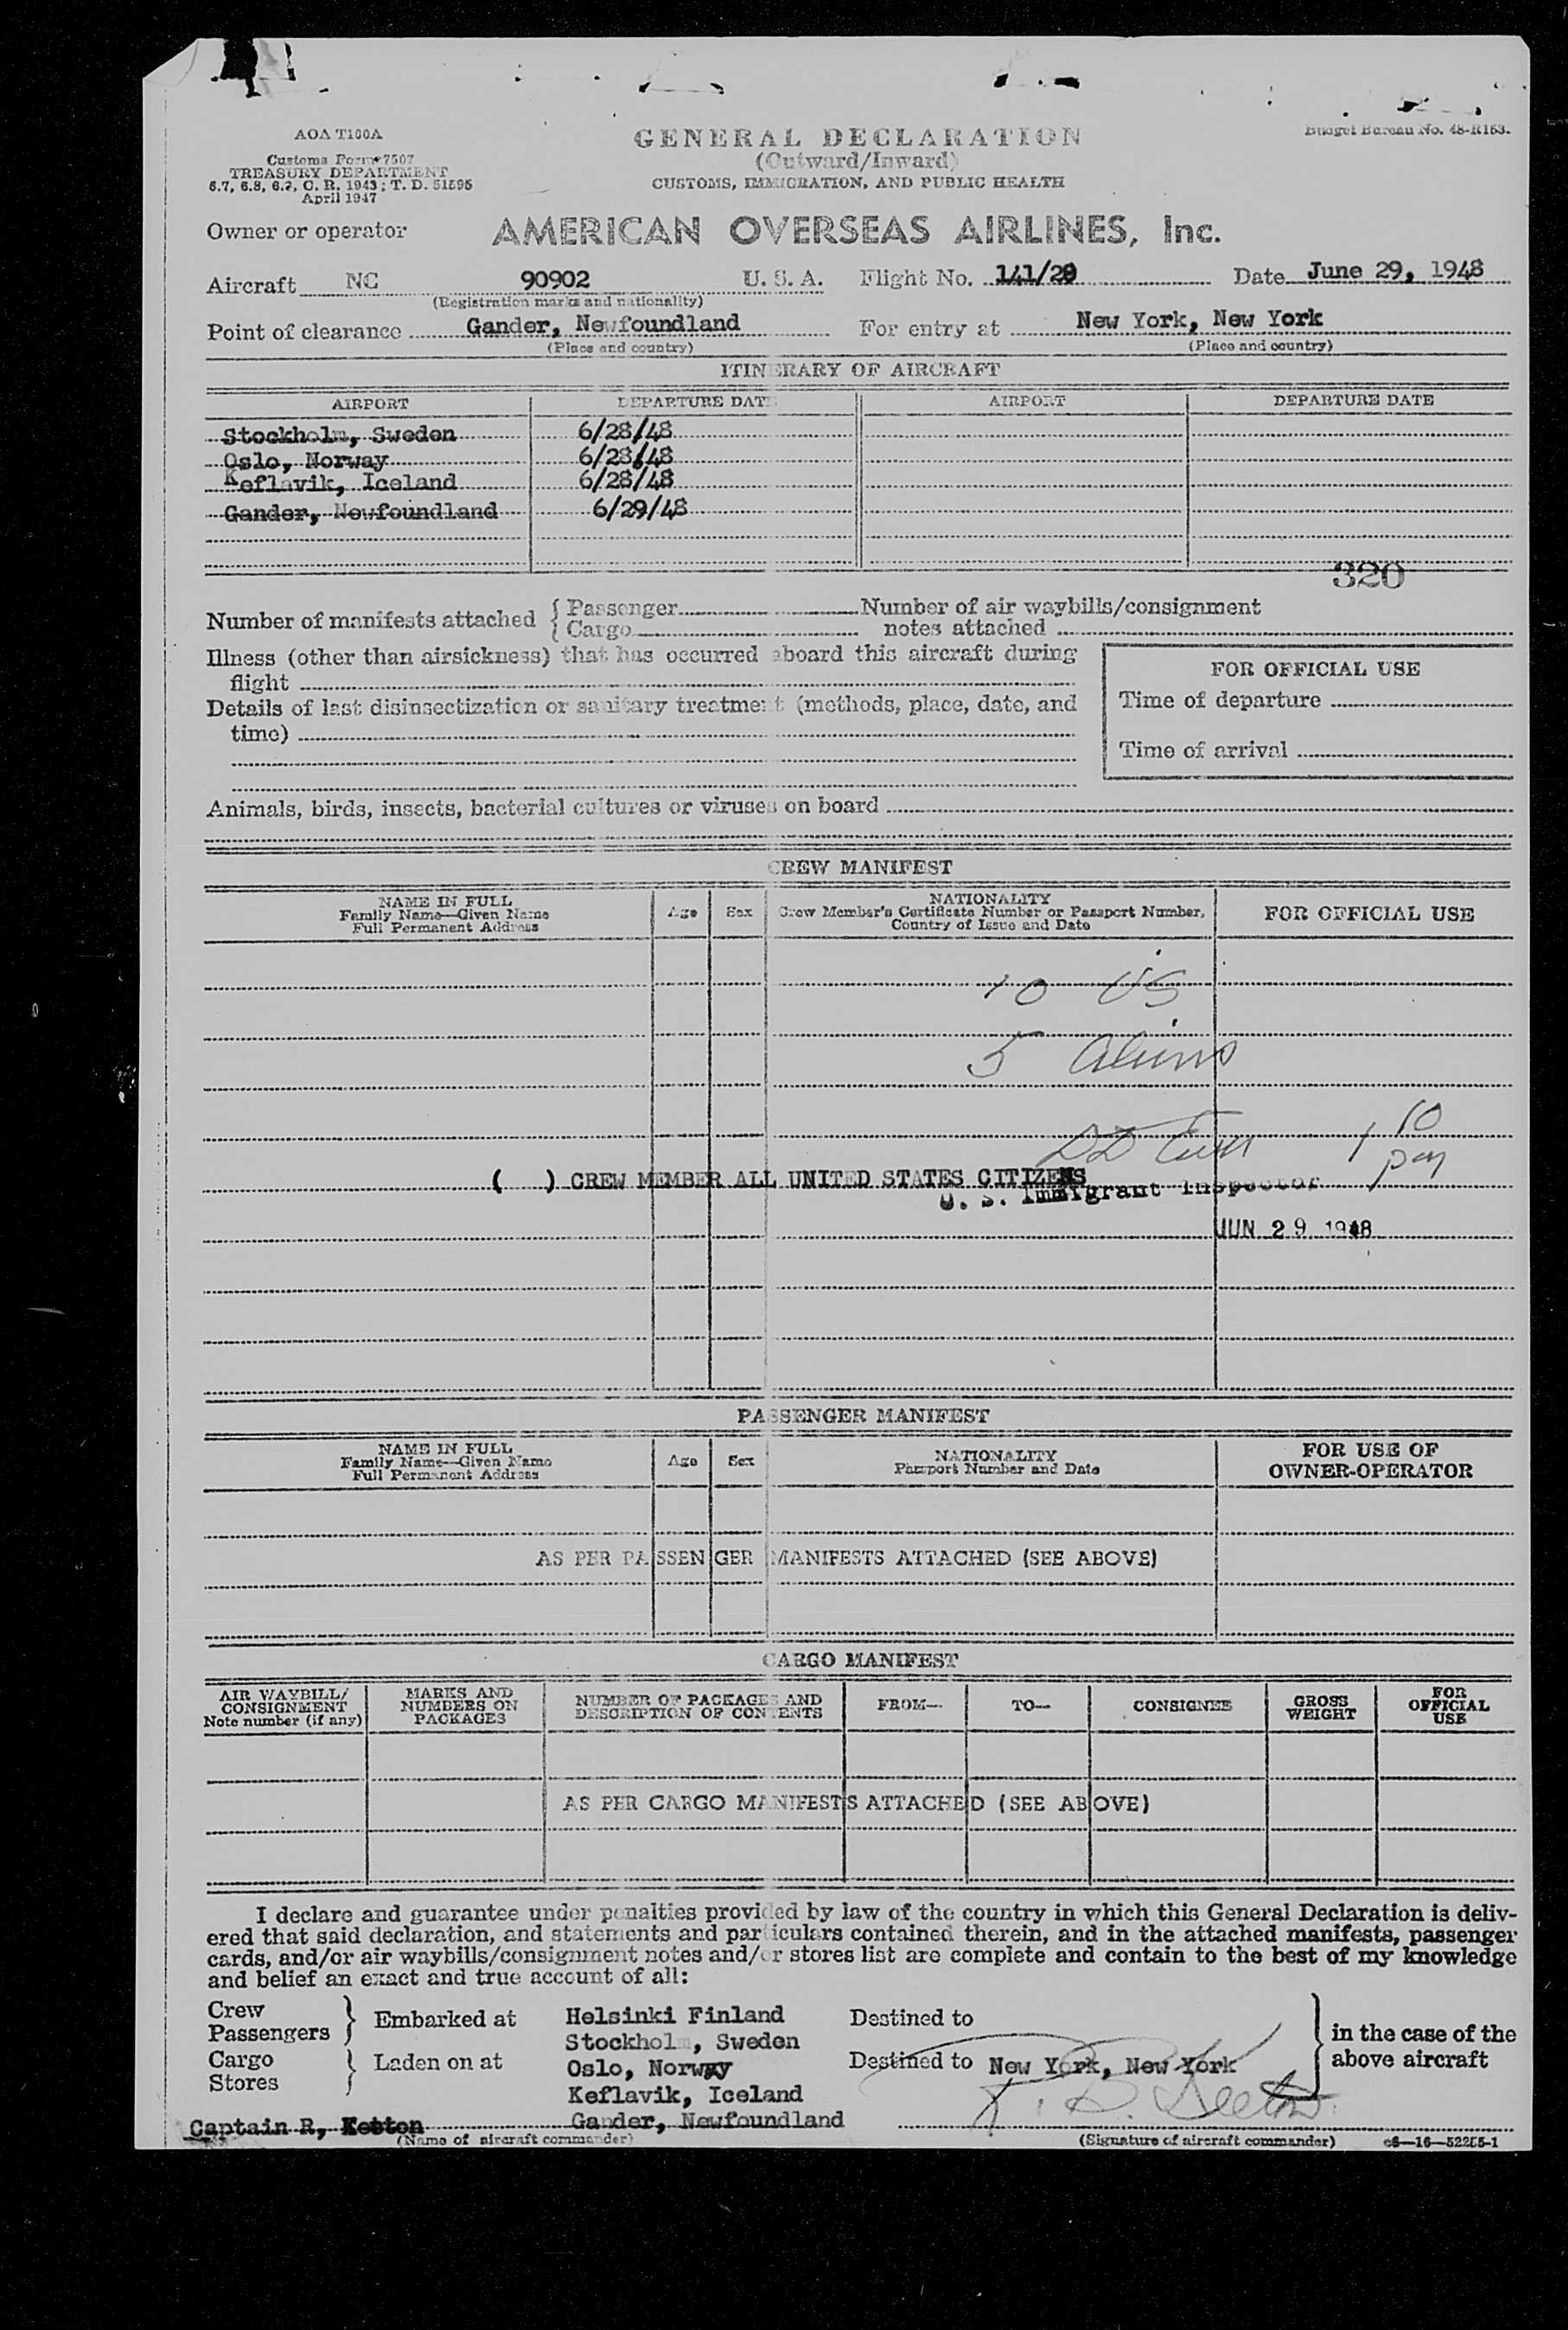 AOA T100A
Customs Form 7507
TREASURY DEPARTMENT
6.7, 6.8, 6.2, C. R. 1943; T. D. 51595
April 1947
GENERAL DECLARATION
(Outward/Inward)
CUSTOMS, IMMIGRATION, AND PUBLIC HEALTH
Budget Bureau No. 48-R153.
Owner or operator AMERICAN OVERSEAS AIRLINES, Inc.
Aircraft NC 90902 U. S. A. Flight No. 141/29 Date June 29, 1948
(Registration marks and nationality)
Point of clearance Gander, Newfoundland For entry at New York, New York
(Place and country) (Place and country)
ITINERARY OF AIRCRAFT
AIRPORT DEPARTURE DATE AIRPORT DEPARTURE DATE
Stockholm, Sweden 6/28/48
Oslo, Norway 6/28/48
Keflavik, Iceland 6/28/48
Gander, Newfoundland 6/29/48
320
Number of manifests attached { Passenger Number of air waybills/consignment
{ Cargo notes attached
Illness (other than airsickness) that has occurred aboard this aircraft during
flight
Details of last disinsectization or sanitary treatment (methods, place, date, and
time)
FOR OFFICIAL USE
Time of departure
Time of arrival
Animals, birds, insects, bacterial cultures or viruses on board
CREW MANIFEST
NAME IN FULL
Family Name—Given Name
Full Permanent Address
Age Sex
NATIONALITY
Crew Member's Certificate Number or Passport Number,
Country of Issue and Date
FOR OFFICIAL USE
10 US
5 Aliens
1 10 pm
( ) CREW MEMBER ALL UNITED STATES CITIZENS
U. S. Immigrant Inspector
JUN 29 1948
PASSENGER MANIFEST
NAME IN FULL
Family Name—Given Name
Full Permanent Address
Age Sex
NATIONALITY
Passport Number and Date
FOR USE OF
OWNER-OPERATOR
AS PER PASSENGER MANIFESTS ATTACHED (SEE ABOVE)
CARGO MANIFEST
AIR WAYBILL/
CONSIGNMENT
Note number (if any)
MARKS AND
NUMBERS ON
PACKAGES
NUMBER OF PACKAGES AND
DESCRIPTION OF CONTENTS
FROM— TO— CONSIGNEE
GROSS
WEIGHT
FOR
OFFICIAL
USE
AS PER CARGO MANIFESTS ATTACHED (SEE ABOVE)
I declare and guarantee under penalties provided by law of the country in which this General Declaration is deliv-
ered that said declaration, and statements and particulars contained therein, and in the attached manifests, passenger
cards, and/or air waybills/consignment notes and/or stores list are complete and contain to the best of my knowledge
and belief an exact and true account of all:
Crew
Passengers } Embarked at
Cargo
Stores } Laden on at
Helsinki Finland
Stockholm, Sweden
Oslo, Norway
Keflavik, Iceland
Gander, Newfoundland
Destined to
Destined to New York, New York
} in the case of the
above aircraft
Captain R,
(Name of aircraft commander) (Signature of aircraft commander) c6—16—52255-1